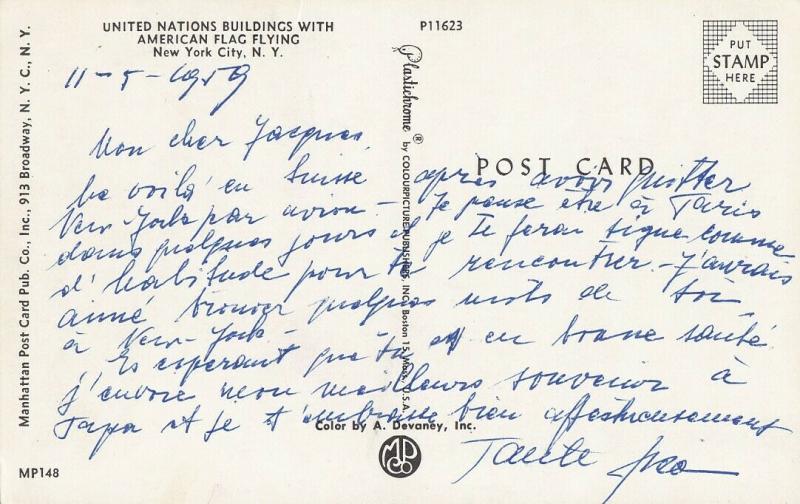 UNITED NATIONS BUILDINGS WITH
AMERICAN FLAG FLYING
New York City, N. Y.
P11623
PUT
STAMP
HERE
Manhattan Post Card Pub. Co., Inc., 913 Broadway, N. Y. C., N. Y.
Plastichrome ® by COLOURPICTURE PUBLISHERS, INC., Boston 15, Mass., U.S.A.
POST CARD
11-5-1959
Mon cher Jacques,
voilà en Suisse après avoir quitter
New-York par avion - Je pense être à Paris
dans quelques jours et je te ferai signe comme
d'habitude pour te rencontrer - J'aurais
aimé trouver quelques mots de toi,
à New-York -
En esperant que tu es en bonne santé
j'envoie mon meilleurs souvenir à
Papa et je t'embrasse bien affectueusement
Tante
Color by A. Devaney, Inc.
MPCO
MP148